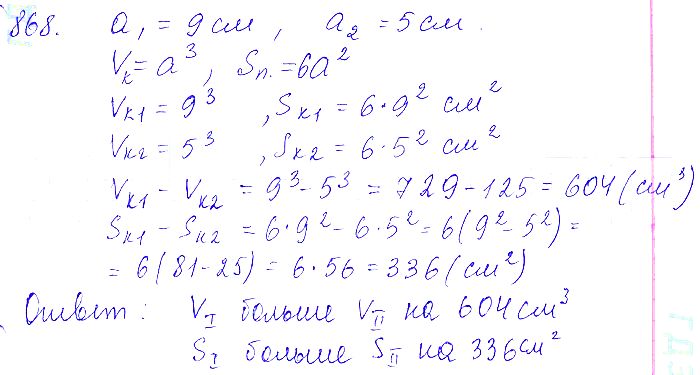 868. a₁ = 9 см, a₂ = 5 см.
Vк = a³, Sп. = 6a²
Vк1 = 9³, Sк1 = 6·9² см²
Vк2 = 5³, Sк2 = 6·5² см²
Vк1 - Vк2 = 9³ - 5³ = 729 - 125 = 604 (см³)
Sк1 - Sк2 = 6·9² - 6·5² = 6(9² - 5²) =
= 6(81 - 25) = 6·56 = 336 (см²)
Ответ: V_I больше V_II на 604 см³
S_I больше S_II на 336 см²